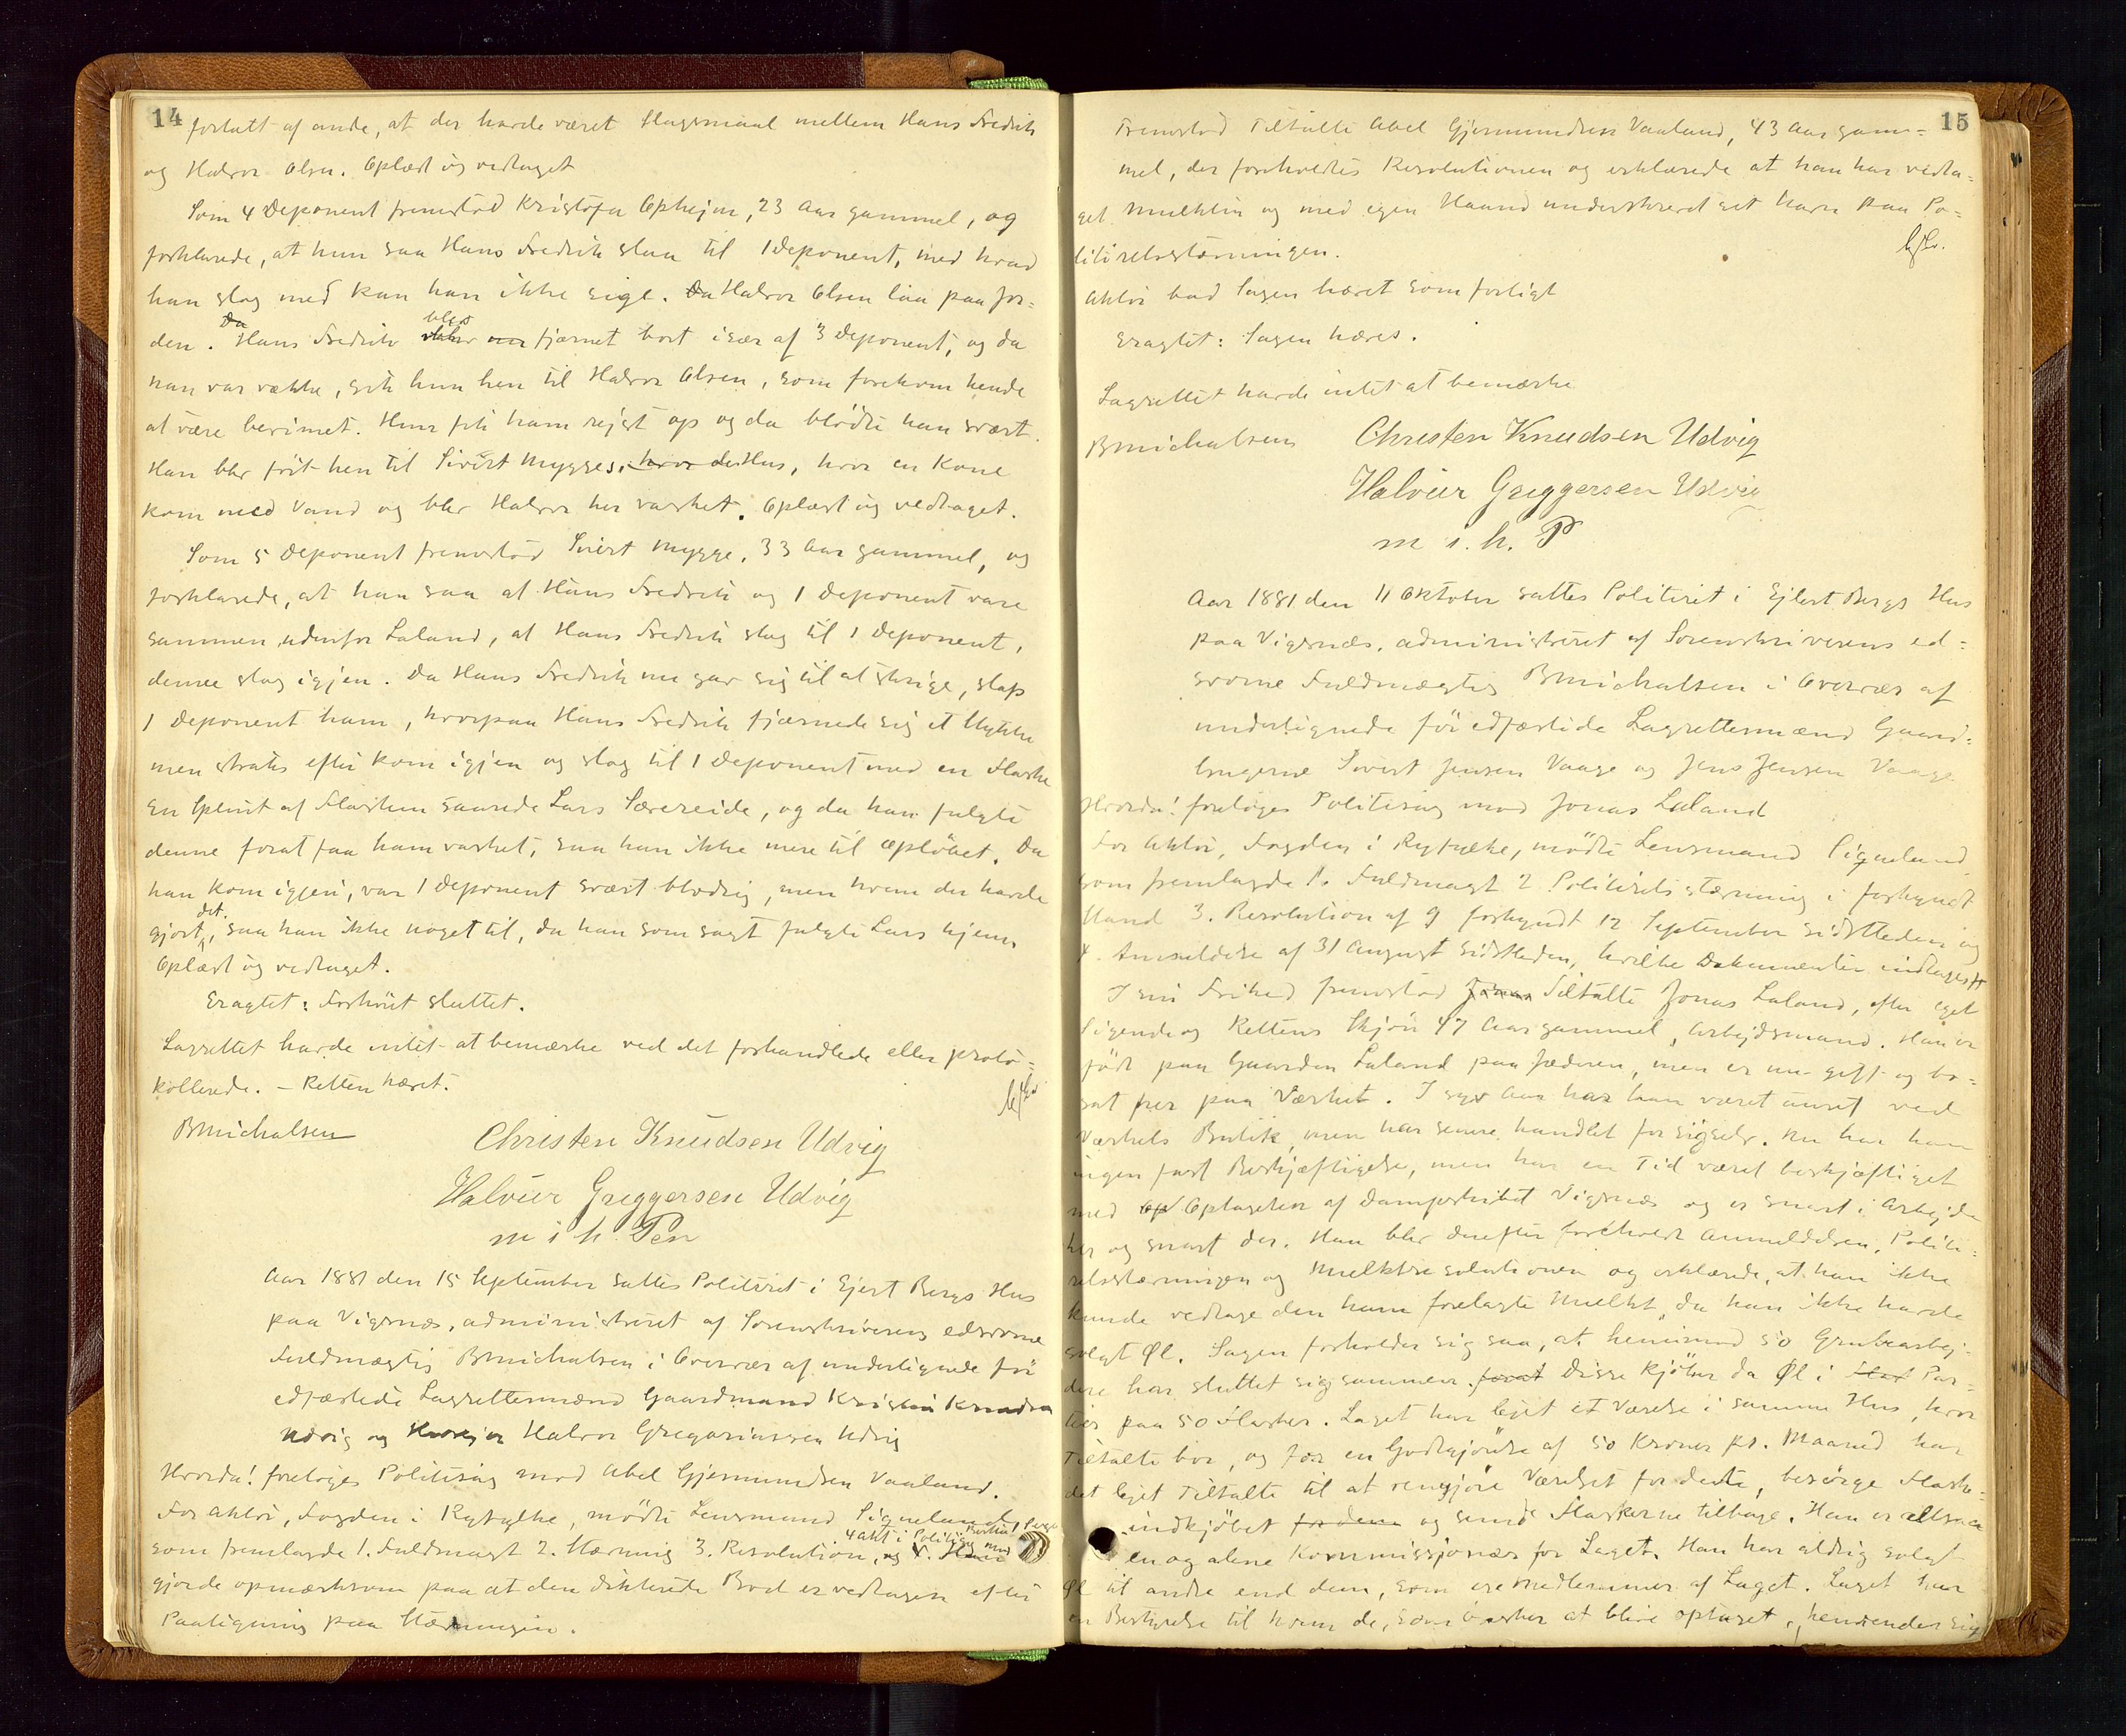 14
fortalt af andre, at der havde været Slagsmaal mellem Hans Fredrik
og Halvor Olsen. Oplæst og vedtaget
Som 4 Deponent fremstod Kristofa Opheim, 23 Aar gammel, og
forklarede, at hun saa Hans Fredrik slaa til 1 Deponent, med hvad
han slog med kan han ikke sige. Da Halvor Olsen laa paa Jor=
den. Hans Fredrik blev fjærnet bort især af 3 Deponent, og da
han var vække, gik hun hen til Halvor Olsen, som forekom hende
at være besvimet. Hun fik ham rejst op og da blødte han svært.
Han blev ført hen til Sivert Mygges, hvor der Hus, hvor en Kone
kom med Vand og blev Halvor her vasket. Oplæst og vedtaget.
Som 5 Deponent fremstod Sivert Mygge, 33 Aar gammel, og
forklarede, at han saa at Hans Fredrik og 1 Deponent vare
sammen udenfor Laland, at Hans Fredrik slog til 1 Deponent,
denne slog igjen. Da Hans Fredrik nu gav sig til at skrige, slap
1 Deponent ham, hvorpaa Hans Fredrik fjærnede sig et Stykke
men straks efter kom igjen og slog til 1 Deponent med en Flaske
En Splint af Flasken saarede Lars Særereide, og da han fulgte
denne forat faa ham vasket, saa han ikke mere til Opløbet. Da
han kom igjen, var 1 Deponent svært blodig, men hvem der havde
gjort det, saa han ikke noget til, da han som sagt fulgte Lars hjem.
Oplæst og vedtaget.
Eragtet: Forhøret sluttet.
Lagrettet havde intet at bemærke ved det forhandlede eller proto=
kollerede. – Retten hævet.
BMichalsen
Christen Knudsen Udvig
Halvier Greggersen Udvig
m i h. Pen
Aar 1881 den 15 September sattes Politiret i Ejert Bergs Hus
paa Vigsnæs, administreret af Sorenskriverens edsvorne
Fuldmægtig BMichalsen i Overvær af undertegnede før
edfæstede Lagrettemænd Gaardmand Kristen Knudsen
Udvig og Halvor Gregoriussen Udvig
Hvorda! foretoges Politisag mod Abel Gjermundsen Vaaland.
For Aktor, Fogden i Ryfylke, mødte Lensmand Signeland
som fremlagde 1. Fuldmagt 2. Stævning 3. Resolution, og 4 Akt i Politisag mod
gjorde opmærksom paa at den dikterede Bod er vedtagen efter
Paategning paa Stævningen.
15
Fremstod Tiltalte Abel Gjermundsen Vaaland, 43 Aar gam=
mel, der foreholdtes Resolutionen og erklærede at han har vedta=
get Mulkten og med egen Haand underskrevet sit Navn paa Po=
litiretsstævningen.
Aktor bad Sagen hævet som forligt
Eragtet: Sagen hæves.
Lagrettet havde intet at bemærke
BMichalsen
Christen Knudsen Udvig
Halvier Greggersen Udvig
m i. h. P
Aar 1881 den 11 Oktober sattes Politiret i Ejlert Bergs Hus
paa Vigsnæs, administreret af Sorenskriverens ed=
svorne Fuldmægtig BMichalsen i Overvær af
undertegnede før edfæstede Lagrettemænd Gaard=
brugerne Sivert Jensen Vaage og Jens Jensen Vaage
Hvorda! foretoges Politisag mod Jonas Laland
For Aktor, Fogden i Ryfylke, mødte Lensmand Signeland
som fremlagde 1. Fuldmagt 2 Politiretsstævning i forkyndt
Stand 3. Resolution af 9 forkyndt 12 September sidstleden og
4. Anmeldelse af 31 August sidstleden, hvilke Dokumenter indtages
I sin Frihed fremstod Jonas Tiltalte Jonas Laland, efter eget
Sigende og Rettens Skjøn 47 Aar gammel, Arbejdsmand. Han er
født paa Gaarden Laland paa Jæderen, men er nu gift og bo=
sat her paa Værket. I syv Aar har han været ansat ved
Værkets Butik, men har senere handlet for sigselv. Nu har han
ingen fast Beskjæftigelse, men har en Tid været beskjæftiget
med Op Optagelsen af Dampskibet Vigsnæs og er snart i Arbejde
her og snart der. Han blev derefter foreholdt Anmeldelsen, Politi=
retsstævningen og Mulktresolutionen og erklærede, at han ikke
kunde vedtage den ham forelagte Mulkt, da han ikke havde
solgt Øl. Sagen forholder sig saa, at henimod 50 Grubearbej=
dere har sluttet sig sammen forat Disse kjøber da Øl i Par=
tier paa 50 Flasker. Laget har lejet et Værelse i samme Hus, hvor
Tiltalte bor, og for en Godtgjørelse af 50 Kroner pr. Maaned har
det lejet Tiltalte til at rengjøre Værelset for dette, besørge Flaske=
indkjøbet for dem og sende Flaskerne tilbage. Han er altsaa
en og alene Kommissjonær for Laget. Han har aldrig solgt
Øl til andre end dem, som ere Medlemmer af Laget. Laget har
en Bestyrelse til hvem de, som ønsker at blive optaget, henvender sig